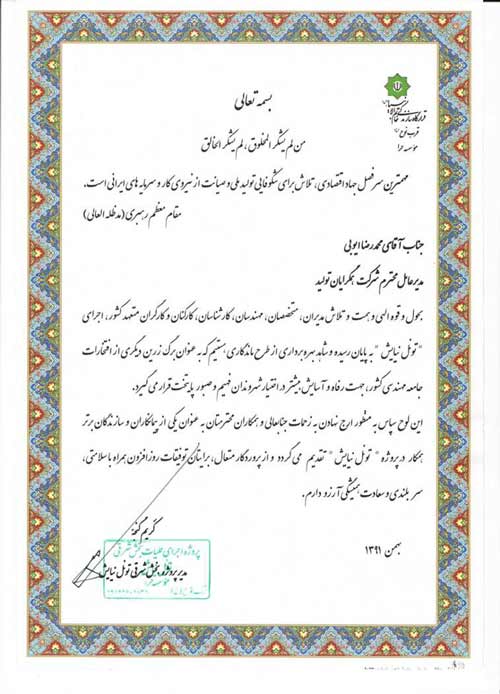 قرارگاه سازندگی خاتم الانبیاء
قرب نوح (ع)
موسسه حرا
بسمه تعالی
من لم یشکر المخلوق، لم یشکر الخالق
مهمترین سرفصل جهاد اقتصادی، تلاش برای شکوفایی تولید ملی و صیانت از نیروی کار و سرمایه های ایرانی است.
مقام معظم رهبری (مدظله العالی)
جناب آقای محمدرضا ایوبی
مدیر عامل محترم شرکت همگرایان تولید
بحول و قوه الهی و همت و تلاش مدیران، متخصصان، مهندسان، کارشناسان، کارکنان و کارگران متعهد کشور، اجرای
" تونل نیایش " به پایان رسیده و شاهد بهره برداری از طرح ماندگاری هستیم که به عنوان برگ زرین دیگری از افتخارات
جامعه مهندسی کشور، جهت رفاه و آسایش بیشتر در اختیار شهروندان فهیم و صبور پایتخت قرار می گیرد.
این لوح سپاس به منظور ارج نهادن به زحمات جنابعالی و همکاران محترمتان به عنوان یکی از پیمانکاران و سازندگان برتر
همکار در پروژه " تونل نیایش " تقدیم می گردد و از پروردگار متعال، برایتان توفیقات روز افزون همراه با سلامتی،
سر بلندی و سعادت همیشگی آرزو دارم.
کریم گنجه
پروژه اجرای عملیات بخش شرقی
مدیر پروژه بخش شرقی تونل نیایش
بهمن ۱۳۹۱